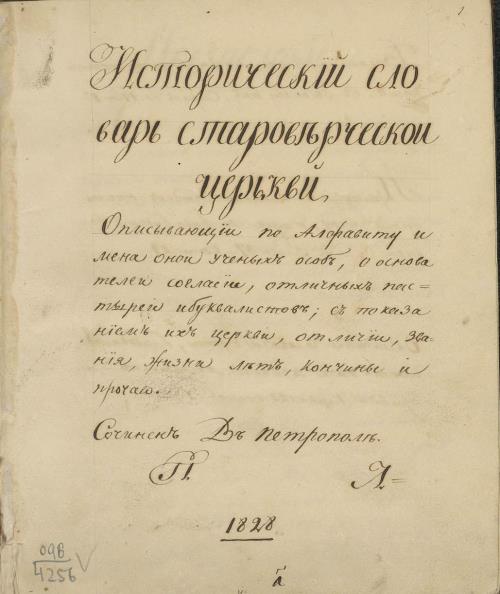 1
Историческій сло
варь старовѣрческои
церькви,
Описывающіи по Алфавиту и
мена онои ученыхъ особъ, о основа
телеи согласіи, отличныхъ пас-
тыреи ибуквалистовъ; съ показа
ніемъ ихъ церкви, отличіи, зва-
нія, жизни лѣтъ, кончины и
прочаго.
Сочиненъ Въ Петрополѣ.
П. Л=
1828
09В
4256
а